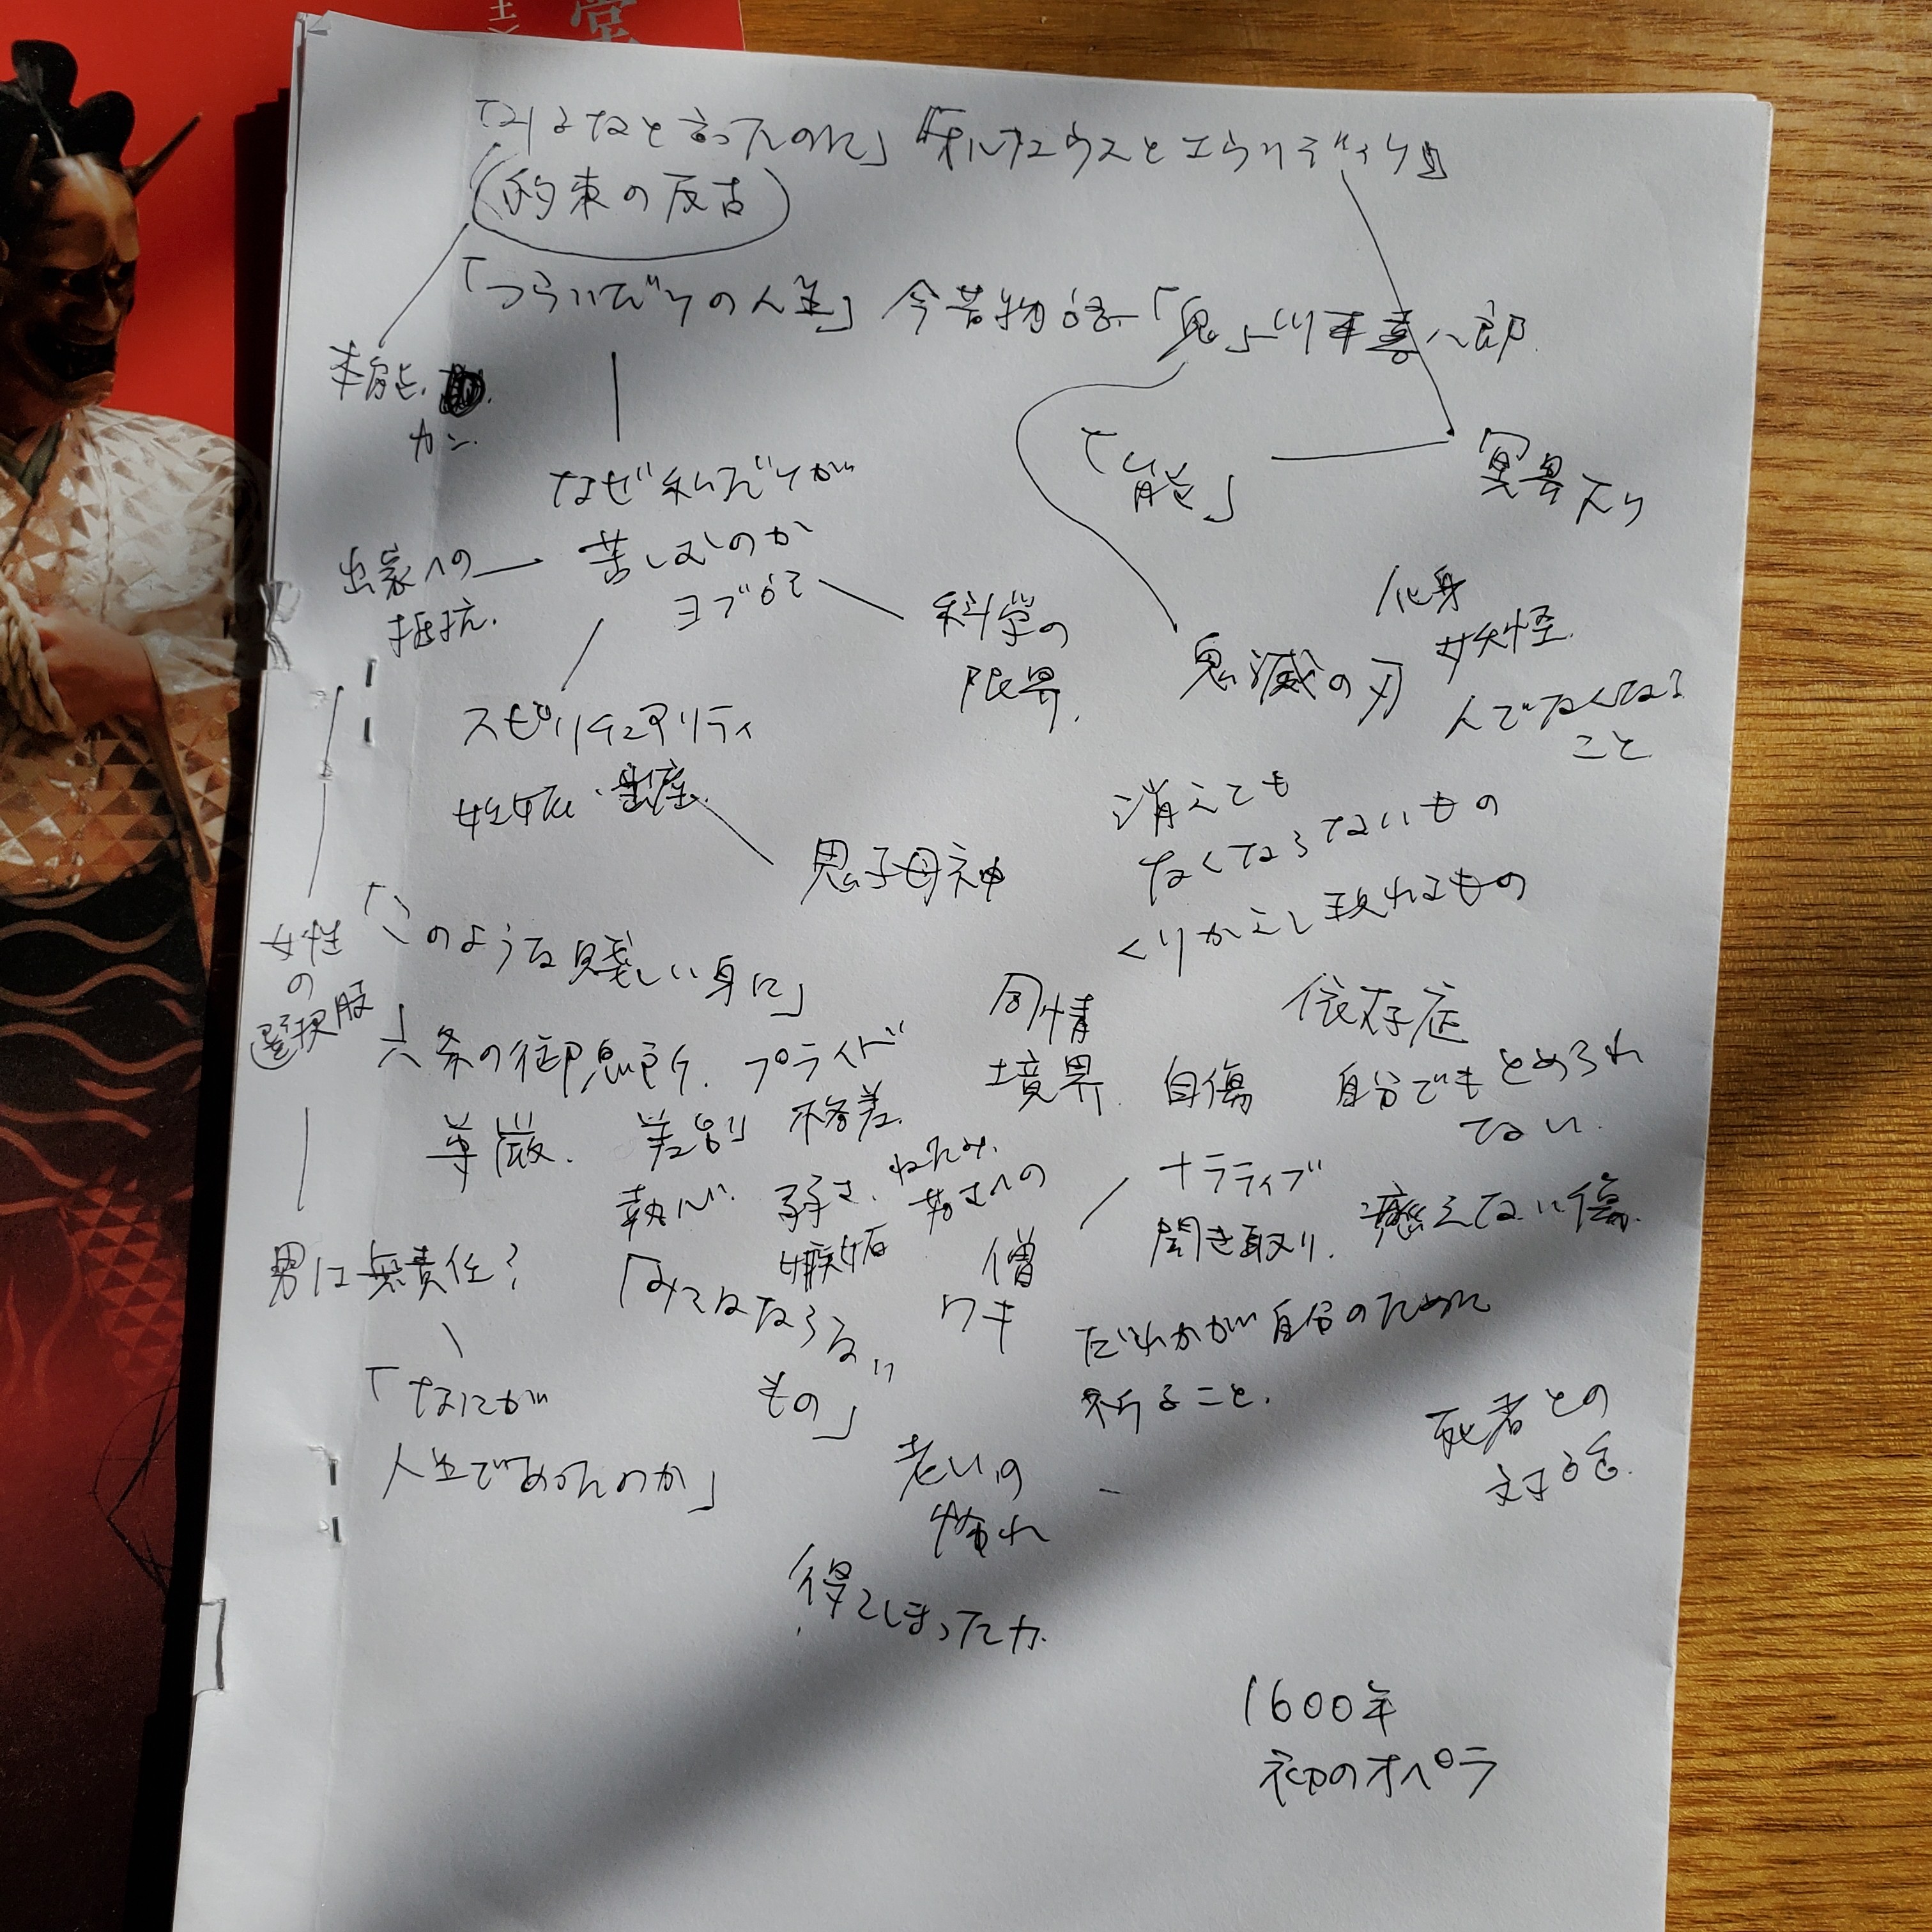 「みるなと言ったのに」『オルフェウスとエウリディケ』
(約束の反古)
「つらいだけの人生」 今昔物語「鬼」川本喜八郎
本能.
カン.
なぜ私だけが
苦しむのか
ヨブ記
「能」
冥界下り
出家への
抵抗.
科学の
限界.
鬼滅の刃
化身
妖怪.
人でなくなる
こと
スピリチュアリティ
性
鬼子母神
消えても
なくならないもの
くりかえし現れるもの
女性
の
選択肢
「このような賤しい身に」
六条の御息所. プライド
同情
境界.
依存症
自傷
自分でもとめられ
ない.
尊厳.
差別
格差.
執心.
弱さ.
ねたみ.
若さへの
嫉妬
ナラティブ
聞き取り.
癒えない傷.
男は無責任?
「みてはならない
もの」
僧
ワキ
だれかが自分のために
祈ること.
「なにが
人生であったのか」
老いの
怖れ
死者との
対話.
得てしまった力.
1600年
初のオペラ